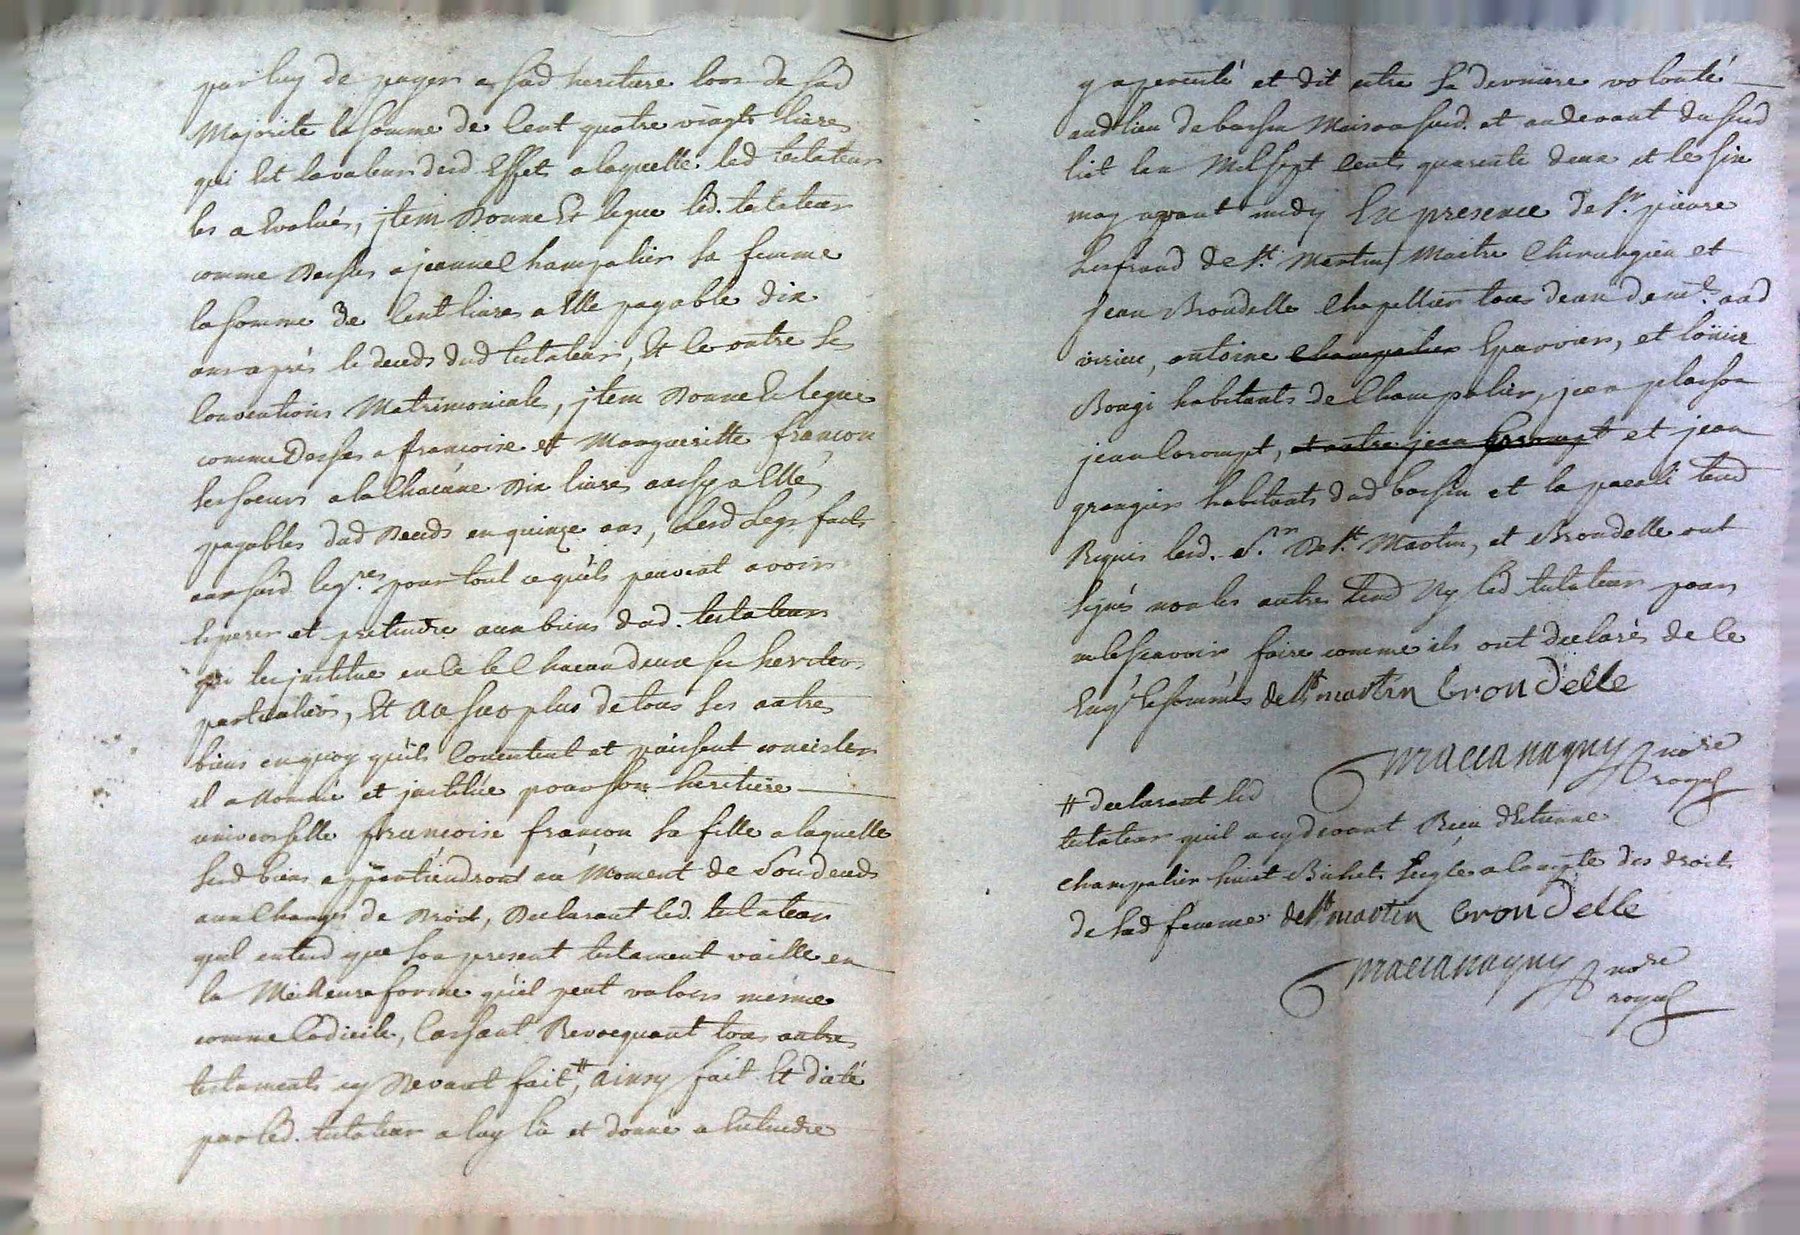 par luy de payer a sad heritiere lors de sad
Majorité la somme de Cent quatre vingts livres
qui Est la valeur desd Effets a laquelle led testateur
les a Evalués, jtem Donne Et legue led. testateur
comme Dessus a jeanne Champalier sa femme
la somme de Cent livres a Elle payable dix
ans aprés le deceds dud testateur, Et ce outre ses
Conventions Matrimoniale, jtem Donne Et legue
comme Dessus a françoise et Margueritte françon
ses soeurs a la Chacune Dix livres aussy a Elles
payables dud Deceds en quinze ans, Lesd Legs faits
aux susd. leg.res pour tout ce qu'ils peuvent avoir
Esperer et pretendre aux biens dud. testateur
qui les jnstitue en Ce le Chacun deux ses heritiers
particuliers, Et Au surplus de tous ses autres
biens en quoy qu'ils Concistent et puissent concister
il a Nommé et jnstitué pour son heritiere
universselle françoise françon sa fille a laquelle
sesd biens appartiendront au Moment de Son deceds
aux Charges de Droit, Declarant led. testateur
qu'il entend que son present testament vaille en
la Meilleure forme qu'il peut valoir mesme
comme Codicile, Cassant Revocquant tous autres
testaments cy Devant fait #, Ainsy fait Et dicté
par led. testateur a luy lû et donné a Entendre
y a percisté et dit estre sa derniere volonté
aud lieu de bassin Maison susd. et au devant du susd
lict l'an Mil sept Cents quarente deux et le six
may avant midy En presence de S.r pierre
de S.t Martin Maitre Chirurgien et
Jean Brondelle Chapellier tous deux dem.t aud
virieu, antoine Champalier Eparvier, et
Bougi habitants de Champalier, jean plasson
jean Corompt, et autre jean Corrompt et jean
grangier habitants dud bassin et la tesm
Requis lesd. S.r De S.t Martin, et Brondelle ont
signés non les autres tesm Ny led testateur pour
ne le scavoir faire comme ils ont declarés de ce
Enq.s Et sommés de St martin brondelle
Maccanagny no.re
royal
# declarant led
testateur qu'il a cy devant Reçu d'Etienne
champalier huict Bichets Seigles a compte des droits
de sad femme de St martin brondelle
Maccanagny no.re
royal